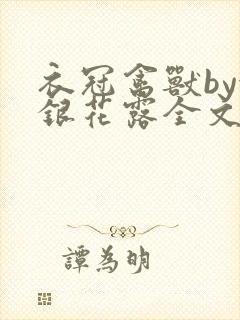 衣冠禽獸by
銀花露全文
譚為明